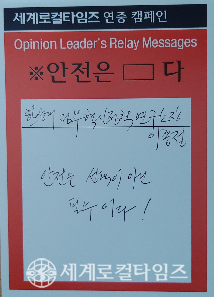 세계로컬타임즈 연중 캠페인
Opinion Leader's Relay Messages
※안전은 □ 다
이
안전은 선택이 아닌
필수이다!
세계로컬타임즈